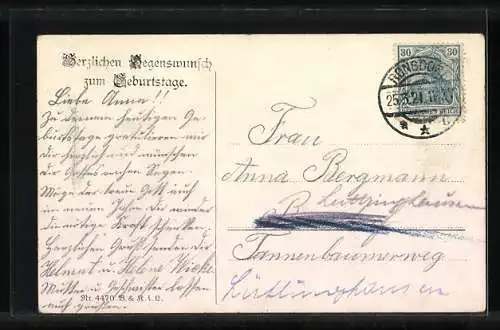 Herzlichen Segenswunsch
zum Geburtstage.
Liebe Anna!!
Zu deinem heutigen Ge-
burtstage gratulieren wir
dir herzlich und wünschen
dir Gottes reichen Segen.
Möge der treue Gott auch
im neuen Jahre dir wieder
die nötige Kraft schenken.
Herzlichen Gruß senden dir
Helmut u. Helene
Mutter u. Geschwister lassen
auch grüßen.
Nr. 4470. B. & K. i. L.
30 30
RONSDORF
25.3.21.
Frau
Anna Bergmann
B.
Lüttringhausen
Tannenbaumerweg
Lüttringhausen